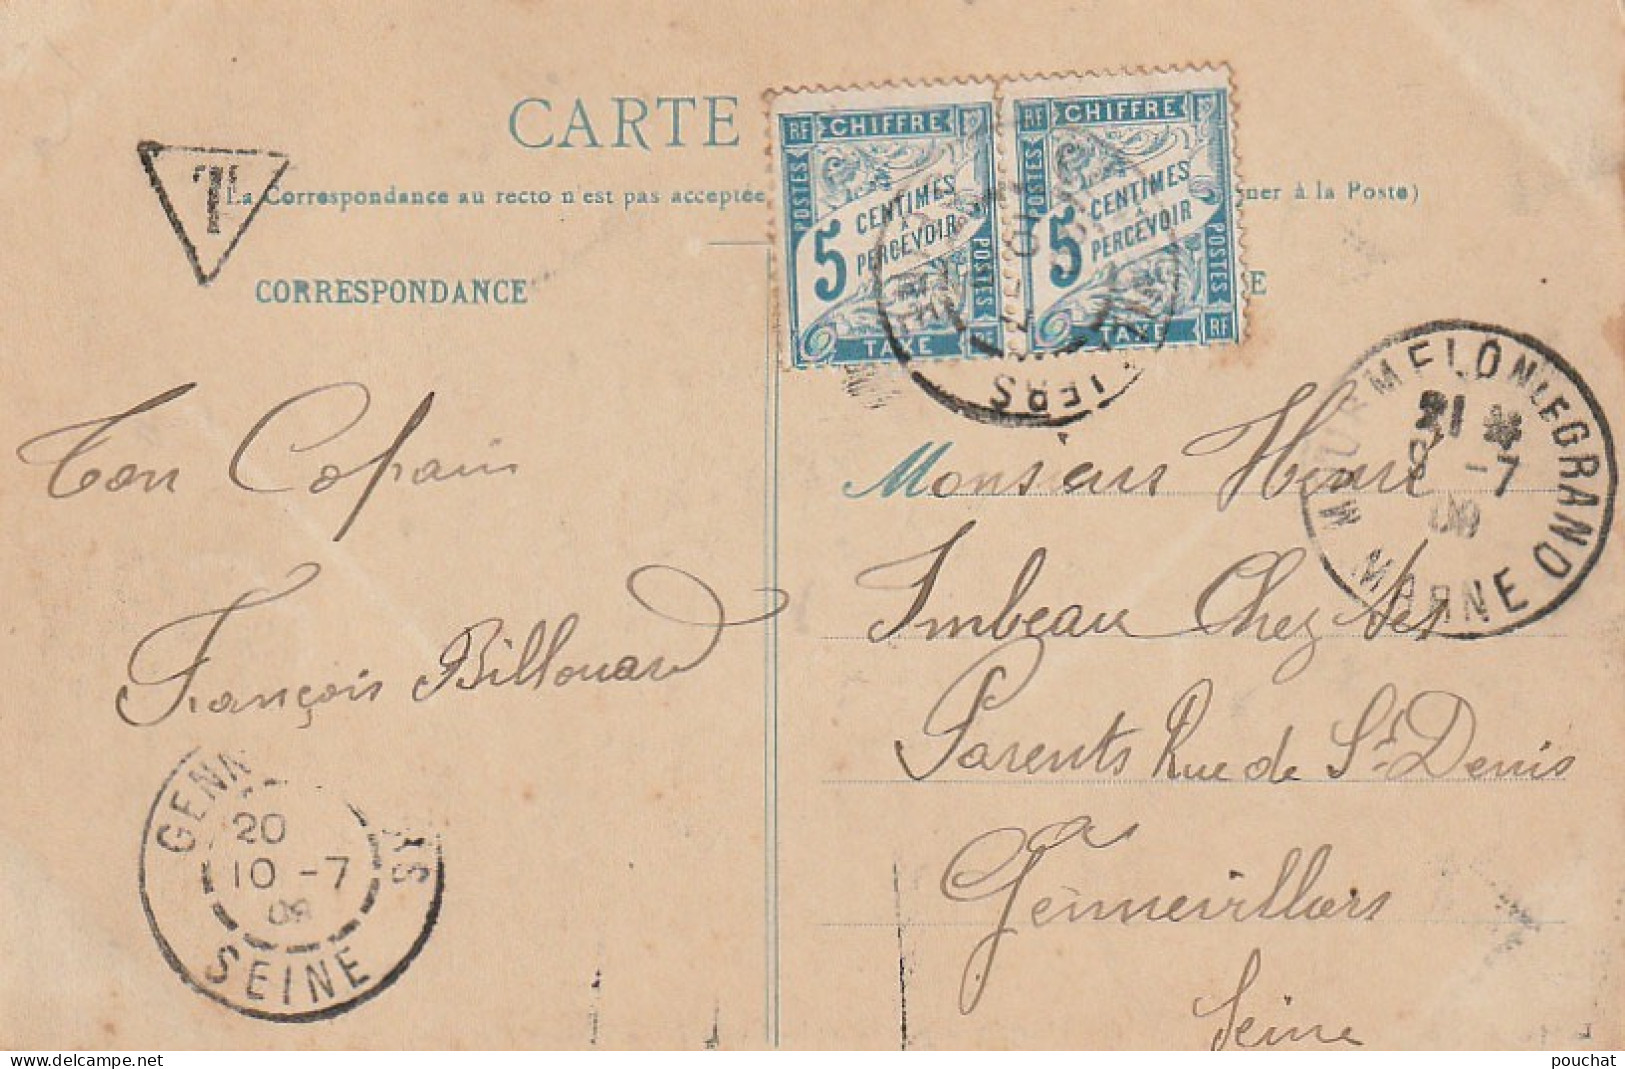 CARTE
T
(La Correspondance au recto n'est pas acceptée
ner à la Poste)
CORRESPONDANCE
E
RF CHIFFRE
POSTES
5 CENTIMES
À
PERCEVOIR
POSTES
TAXE RF
RF CHIFFRE
POSTES
5 CENTIMES
À
PERCEVOIR
POSTES
TAXE RF
IERS
MOURMELON-LE-GRAND
21
9 -7
09
MARNE
Ton Copain
François Billouard
Monsieur Henri
Imbeau Chez ses
Parents Rue de St Denis
Gennevilliers
Seine
GENN
RS
20
10 -7
09
SEINE
pouchat